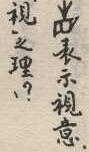 表示視意.
視之理!?